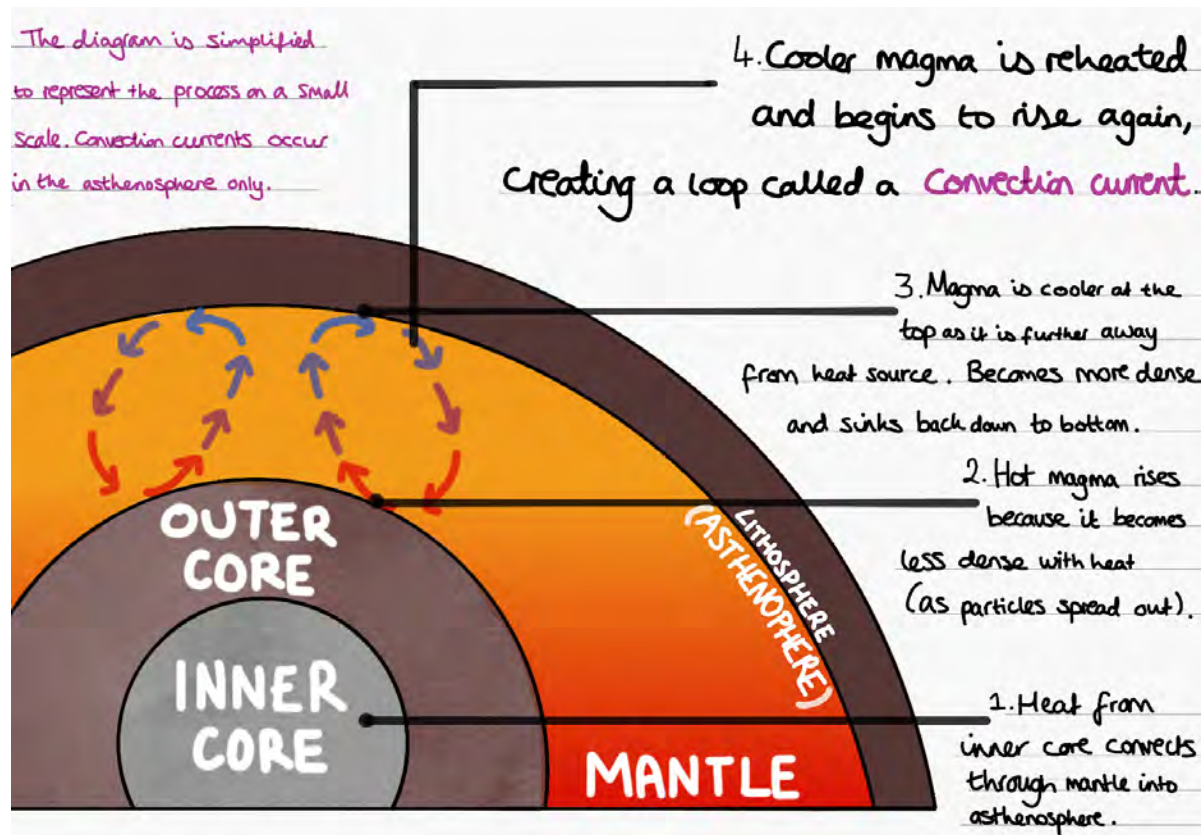 The diagram is simplified
to represent the process on a small
scale. Convection currents occur
in the asthenosphere only.
4. Cooler magma is reheated
and begins to rise again,
creating a loop called a convection current.
3. Magma is cooler at the
top as it is further away
from heat source. Becomes more dense
and sinks back down to bottom.
2. Hot magma rises
because it becomes
less dense with heat
(as particles spread out).
1. Heat from
inner core convects
through mantle into
asthenosphere.
OUTER
CORE
INNER
CORE
MANTLE
LITHOSPHERE
(ASTHENOPHERE)